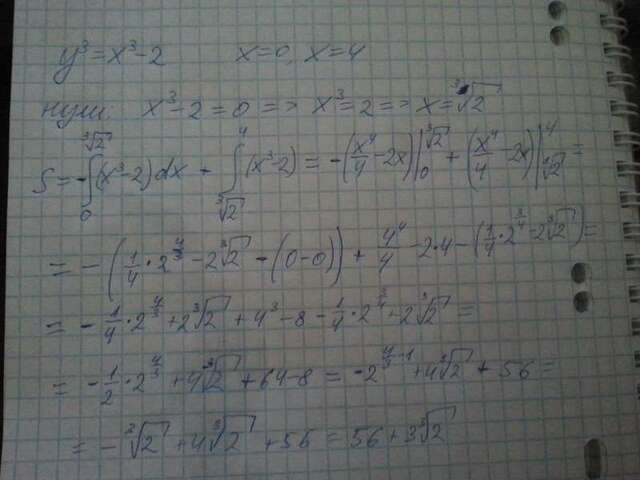 y³ = x³-2 x=0, x=4
нули: x³-2=0 => x³=2 => x=∛2
S = -∫₀^∛2 (x³-2)dx + ∫_∛2^4 (x³-2) = -(x⁴/4 - 2x)|₀^∛2 + (x⁴/4 - 2x)|_∛2^4 =
= -(1/4·2^(4/3) - 2∛2 - (0-0)) + 4⁴/4 - 2·4 - (1/4·2^(3/4) - 2∛2) =
= -1/4·2^(4/3) + 2∛2 + 4³ - 8 - 1/4·2^(3/4) + 2∛2 =
= -1/2·2^(4/3) + 4∛2 + 64-8 = -2^(4/3-1) + 4∛2 + 56 =
= -∛2 + 4∛2 + 56 = 56 + 3∛2